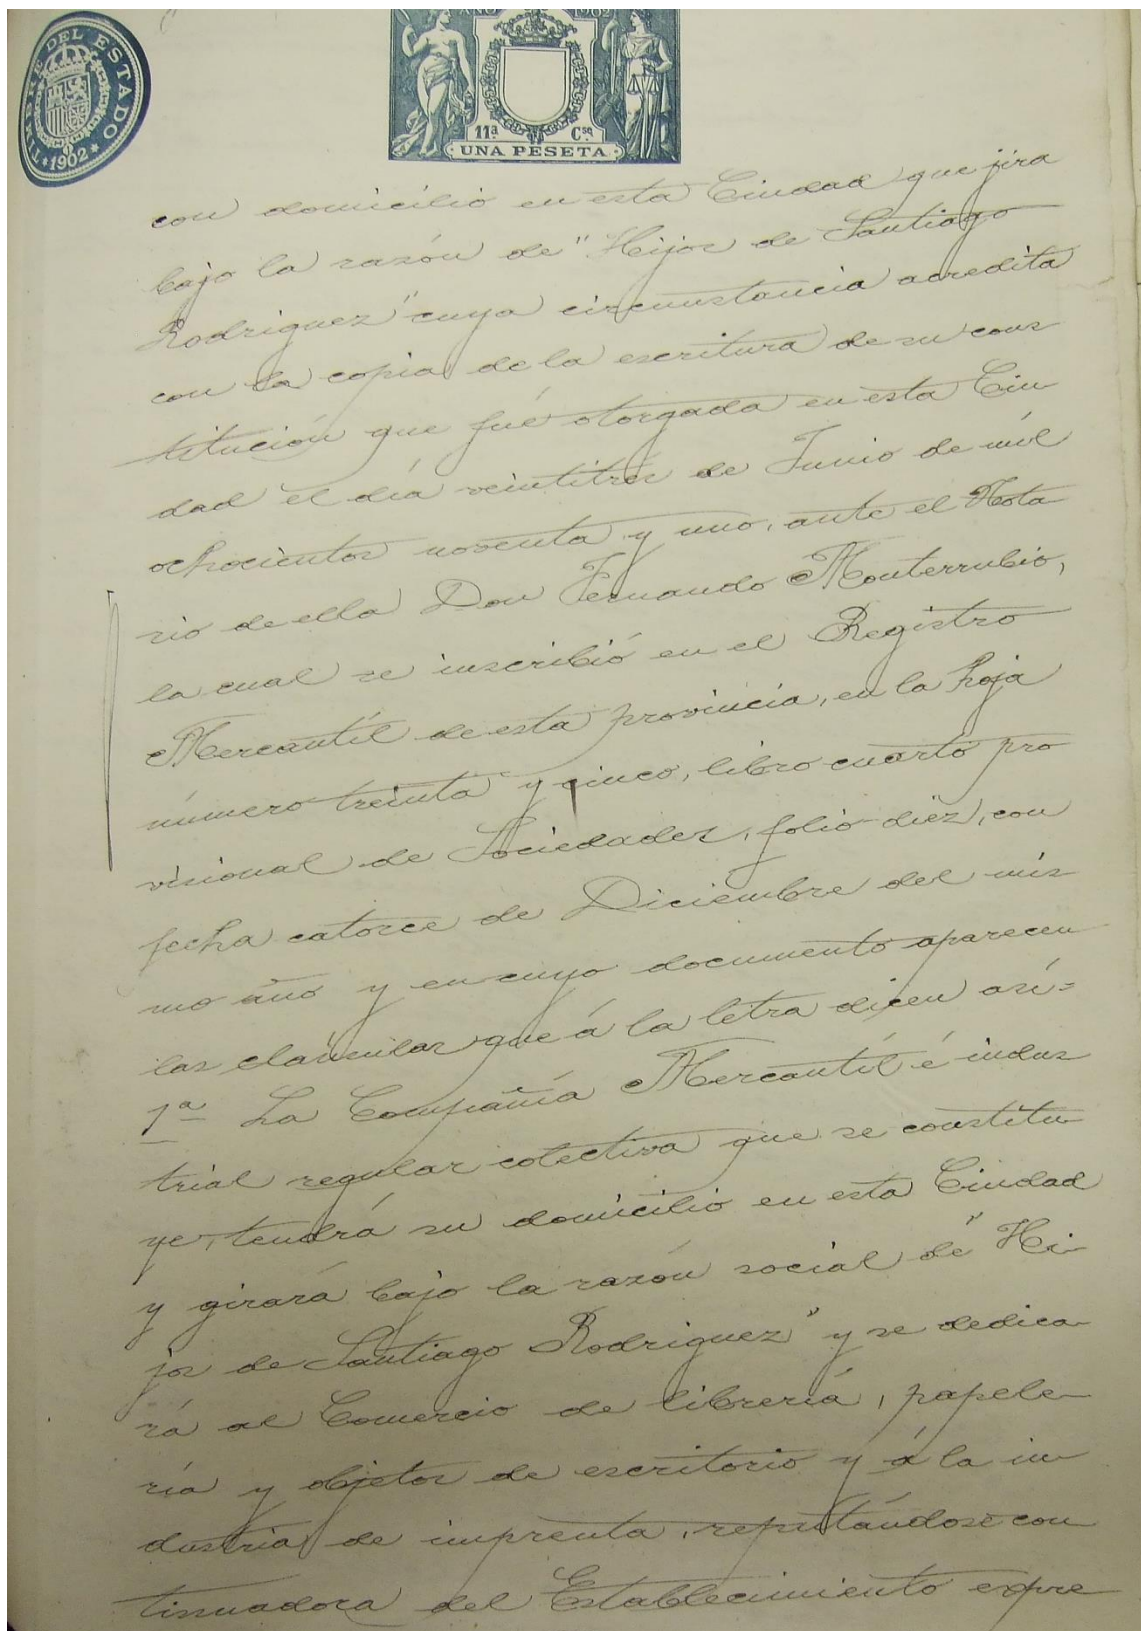 TIMBRE DEL ESTADO
*1902*
AÑO 1902
11ª Cse
UNA PESETA
con domicilio en esta Ciudad que jira
bajo la razón de "Hijos de Santiago
Rodriguez" cuya circunstancia acredita
con la copia de la escritura de su cons
titución que fué otorgada en esta Ciu
dad el día veintitrés de Junio de mil
ochocientos noventa y uno, ante el Nota
rio de ella Don Fernando Monterrubio,
la cual se inscribió en el Registro
Mercantíl de esta provincia, en la hoja
número treinta y cinco, libro cuarto pro
visional de Sociedades, folio diéz, con
fecha catorce de Diciembre del mis
mo año y en cuyo documento aparecen
las claúsulas que á la letra dicen así=
1ª La Compañía Mercantíl é indus
trial regular colectiva que se constitu
ye, tendrá su domicilio en esta Ciudad
y girará bajo la razón social de "Hi-
jos de Santiago Rodriguez" y se dedica-
rá al Comercio de librería, papele-
ría y objetos de escritorio y á la in
dustria de imprenta, reputándose con
tinuadora del Establecimiento expre